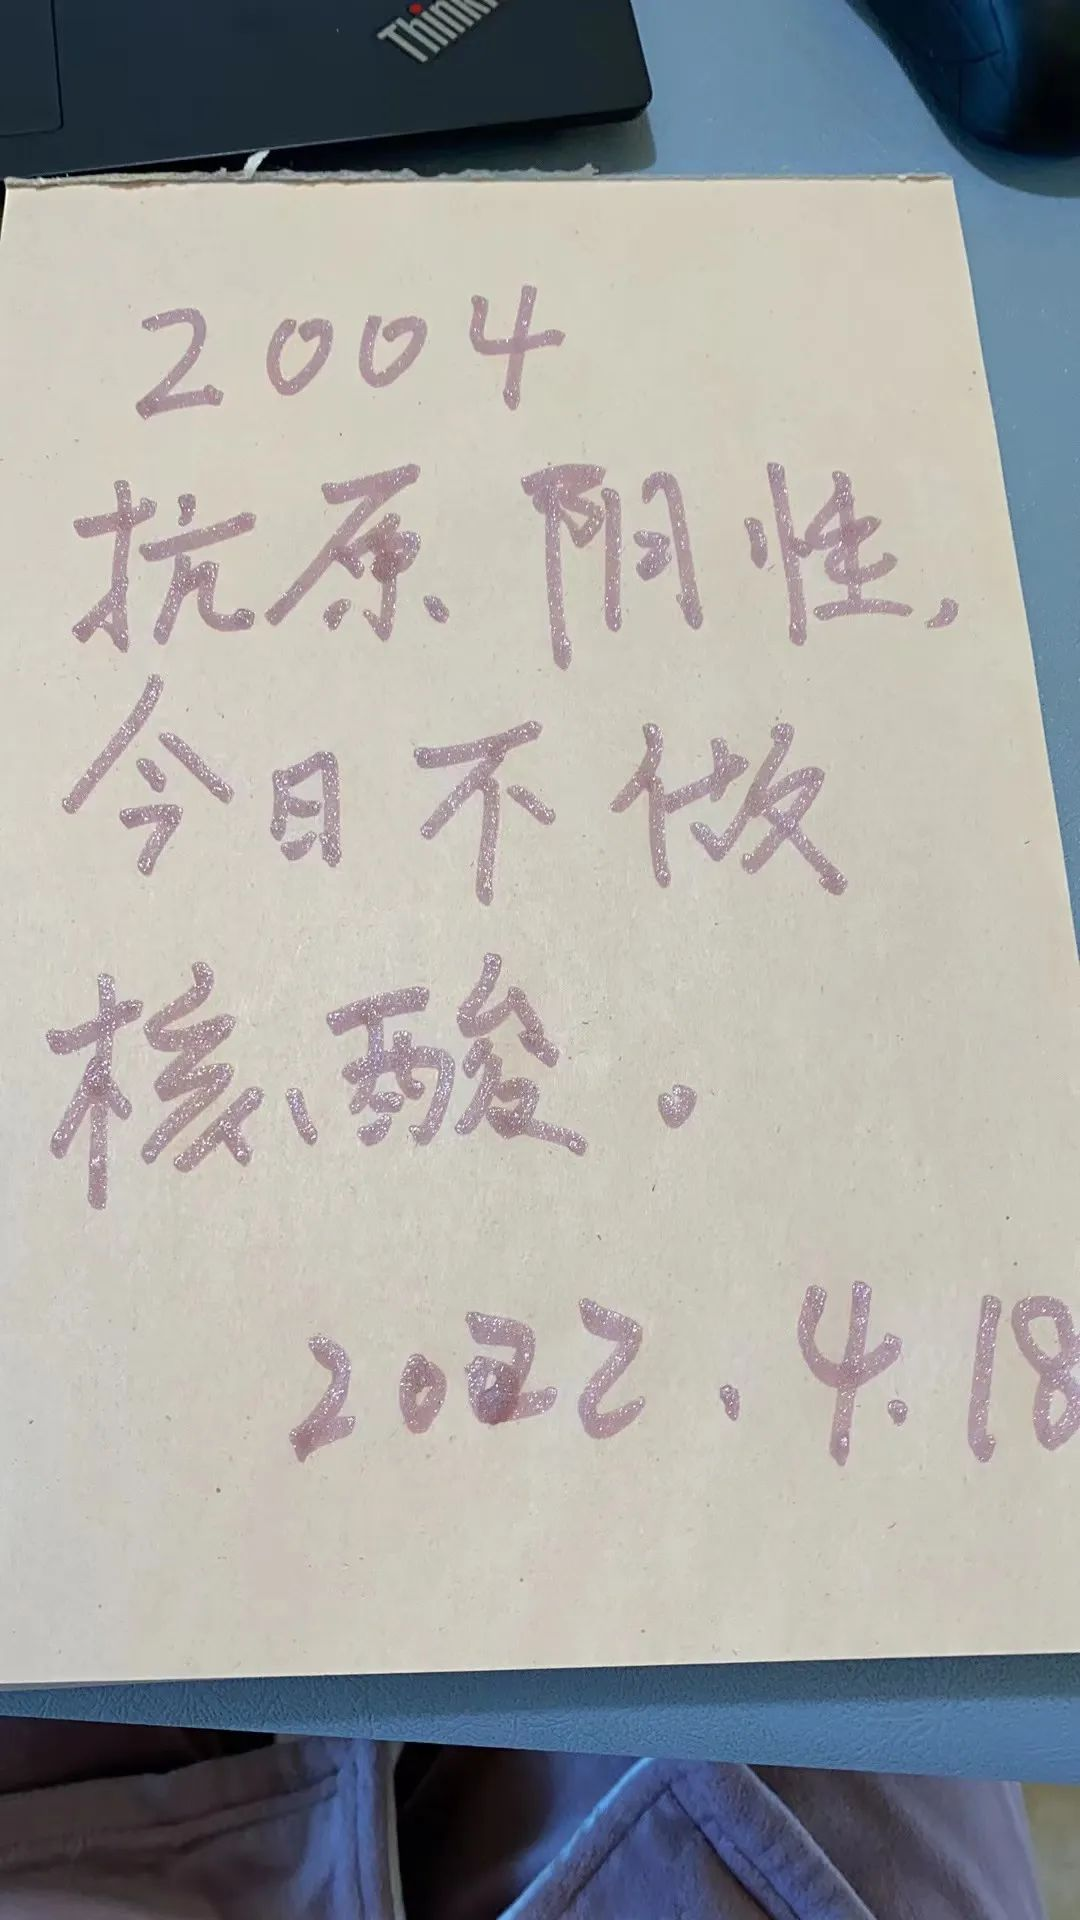 Think
2004
抗原阴性,
今日不做
核酸。
2022.4.18